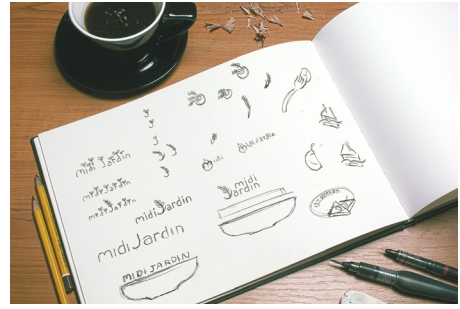 midi Jardin
midi Jardin
midi Jardin
midi Jardin
midi Jardin
MIDI JARDIN
midi
midi
Jardin